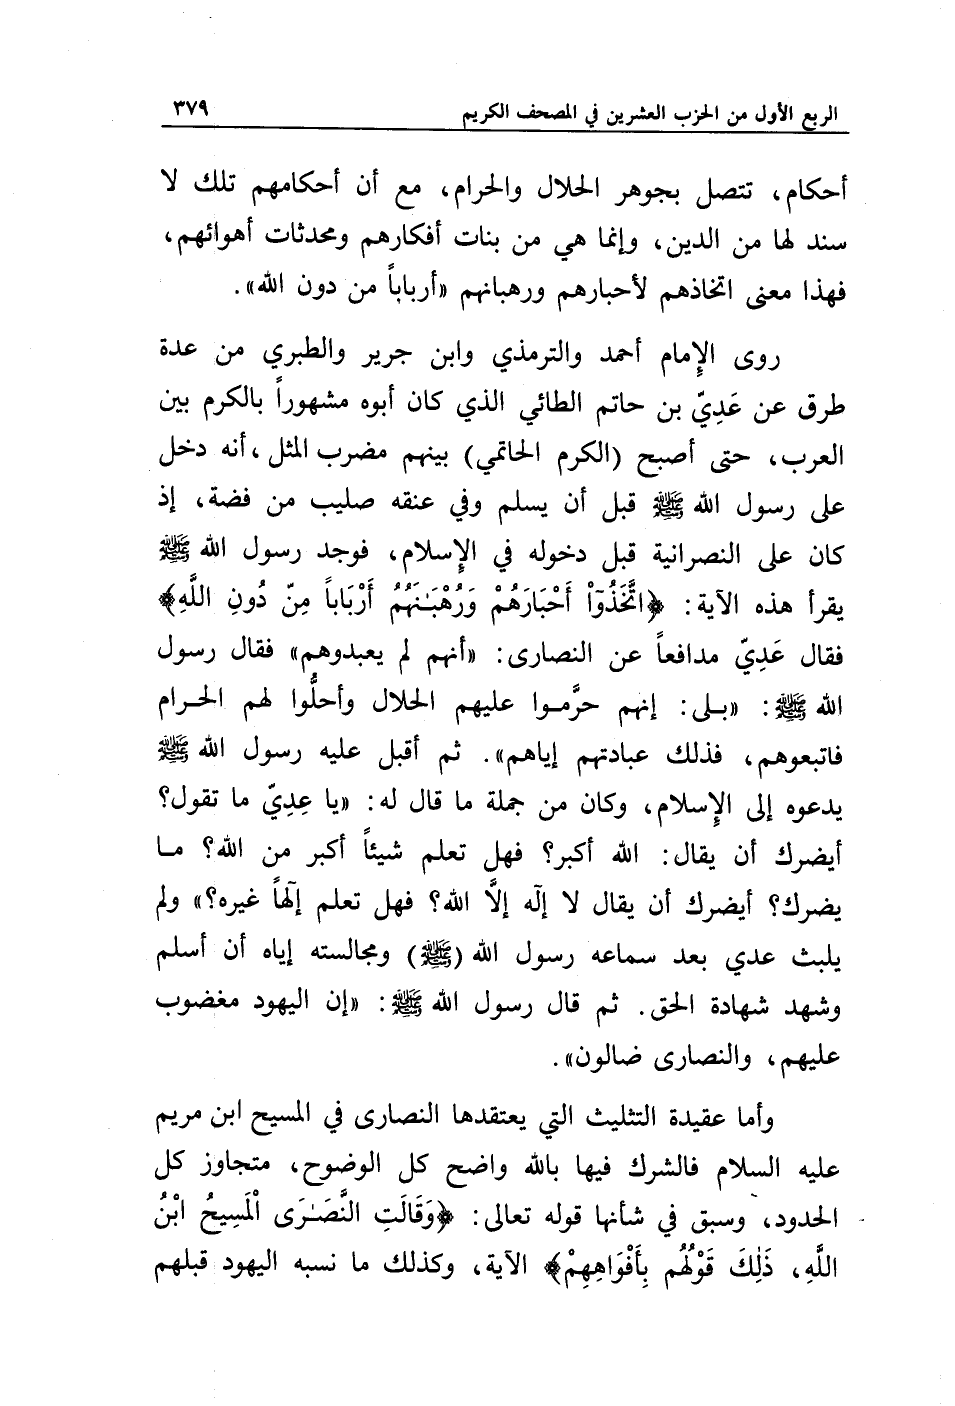 الربع الأول من الحزب العشرين في المصحف الكريم ٣٧٩
أحكام، تتصل بجوهر الحلال والحرام، مع أن أحكامهم تلك لا
سند لها من الدين، وإنما هي من بنات أفكارهم ومحدثات أهوائهم،
فهذا معنى اتخاذهم لأحبارهم ورهبانهم «أرباباً من دون الله».
روى الإمام أحمد والترمذي وابن جرير والطبري من عدة
طرق عن عَدِيّ بن حاتم الطائي الذي كان أبوه مشهوراً بالكرم بين
العرب، حتى أصبح (الكرم الحاتمي) بينهم مضرب المثل، أنه دخل
على رسول الله ﷺ قبل أن يسلم وفي عنقه صليب من فضة، إذ
كان على النصرانية قبل دخوله في الإسلام، فوجد رسول الله ﷺ
يقرأ هذه الآية: ﴿اتَّخَذُوٓاْ أَحْبَارَهُمْ وَرُهْبَـٰنَهُمُ أَرْبَاباً مِنّ دُونِ اللَّهِ﴾
فقال عَدِيّ مدافعاً عن النصارى: «أنهم لم يعبدوهم» فقال رسول
الله ﷺ: «بـلى: إنهم حرَّمـوا عليهم الحلال وأحلُّوا لهم الحـرام
فاتبعوهم، فذلك عبادتهم إياهم». ثم أقبل عليه رسول الله ﷺ
يدعوه إلى الإسلام، وكان من جملة ما قال له: «يا عِديّ ما تقول؟
أيضرك أن يقال: الله أكبر؟ فهل تعلم شيئاً أكبر من الله؟ مـا
يضرك؟ أيضرك أن يقال لا إلَه إلاَّ الله؟ فهل تعلم إلَهاً غيره؟» ولم
يلبث عدي بعد سماعه رسول الله (ﷺ) ومجالسته إياه أن أسلم
وشهد شهادة الحق. ثم قال رسول الله ﷺ: «إن اليهود مغضوب
عليهم، والنصارى ضالون».
وأما عقيدة التثليث التي يعتقدها النصارى في المسيح ابن مريم
عليه السلام فالشرك فيها بالله واضح كل الوضوح، متجاوز كل
الحدود، وسبق في شأنها قوله تعالى: ﴿وَقَالَتِ النَّصَـٰرَى اْلَمَسِيحُ ابْنُ
اللَّهِ، ذَلِكَ قَوْلُهُم بِأَفْوَاهِهِمْ﴾ الآية، وكذلك ما نسبه اليهود قبلهم